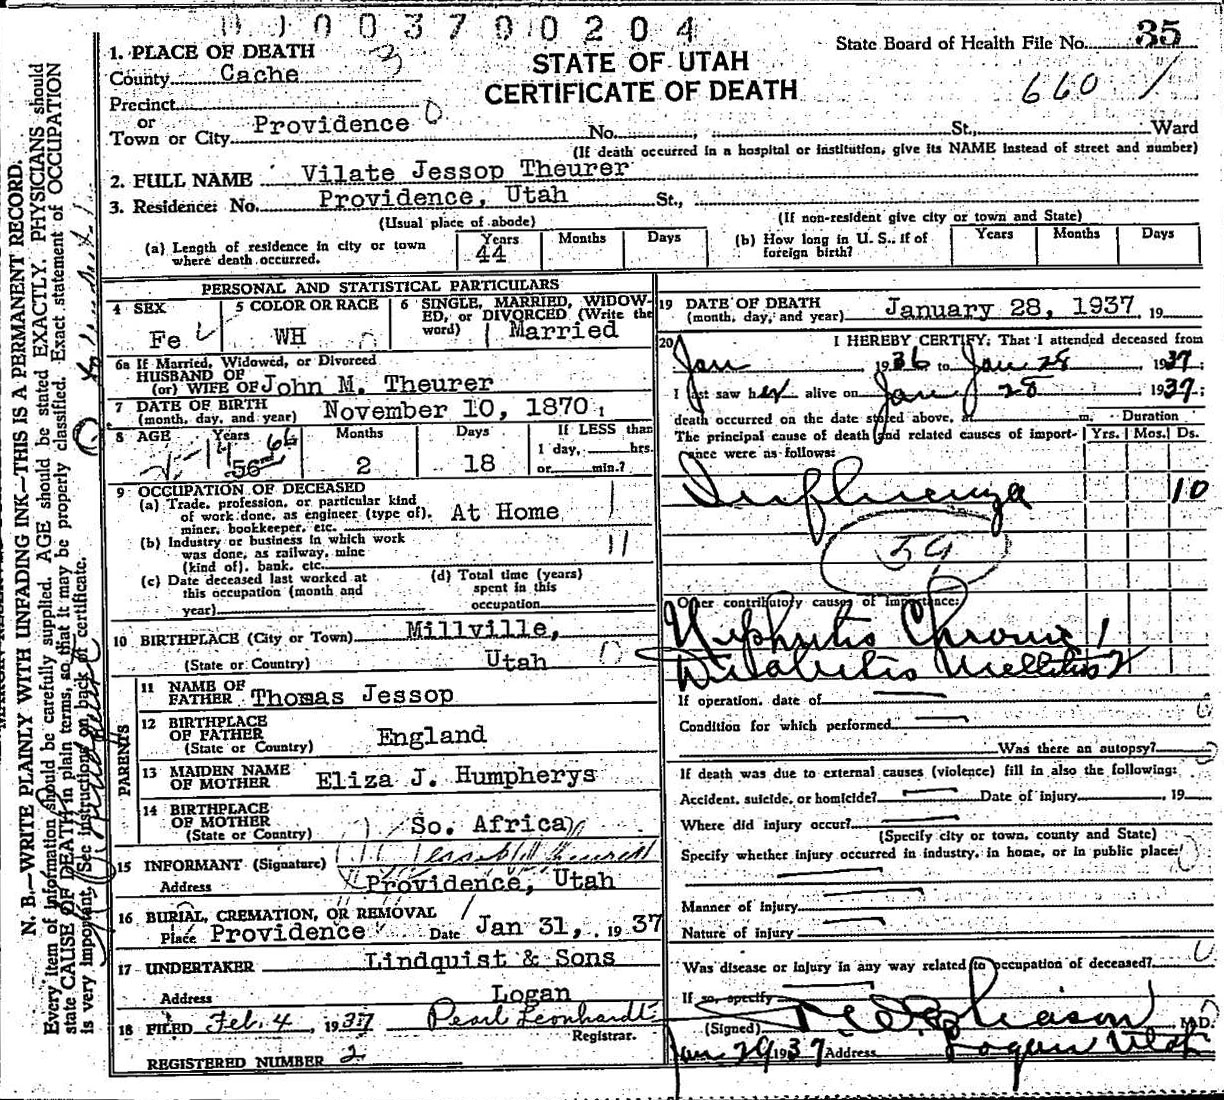 0 0 3 7 0 0 2 0 4
1. PLACE OF DEATH
County Cache 3
Precinct
or
Town or City Providence 0
STATE OF UTAH
CERTIFICATE OF DEATH
State Board of Health File No. 35
660 /
No. , St., Ward
(If death occurred in a hospital or institution, give its NAME instead of street and number)
2. FULL NAME Vilate Jessop Theurer
3. Residence: No. Providence, Utah St.,
(Usual place of abode)
(If non-resident give city or town and State)
(a) Length of residence in city or town where death occurred. Years 44 Months Days
(b) How long in U. S., if of foreign birth? Years Months Days
PERSONAL AND STATISTICAL PARTICULARS
4 SEX Fe
5 COLOR OR RACE WH
6 SINGLE, MARRIED, WIDOWED, or DIVORCED (Write the word) Married
6a If Married, Widowed, or Divorced
HUSBAND OF
(or) WIFE OF John M. Theurer
7 DATE OF BIRTH
(month, day, and year) November 10, 1870
8 AGE Years 56 66 Months 2 Days 18
If LESS than
1 day, hrs.
or min.?
9 OCCUPATION OF DECEASED
(a) Trade, profession, or particular kind
of work done, as engineer (type of), At Home
miner, bookkeeper, etc.
(b) Industry or business in which work
was done, as railway, mine
(kind of), bank, etc.
(c) Date deceased last worked at
this occupation (month and
year)
(d) Total time (years)
spent in this
occupation
10 BIRTHPLACE (City or Town) Millville,
(State or Country) Utah
PARENTS
11 NAME OF
FATHER Thomas Jessop
12 BIRTHPLACE
OF FATHER England
(State or Country)
13 MAIDEN NAME
OF MOTHER Eliza J. Humpherys
14 BIRTHPLACE
OF MOTHER So. Africa
(State or Country)
15 INFORMANT (Signature)
Address Providence, Utah
16 BURIAL, CREMATION, OR REMOVAL
Place Providence Date Jan 31, 1937
17 UNDERTAKER Lindquist & Sons
Address Logan
18 FILED Feb. 4, 1937 Pearl Leonhardt
Registrar.
REGISTERED NUMBER 2
19 DATE OF DEATH
(month, day, and year) January 28, 1937 19
20 I HEREBY CERTIFY, That I attended deceased from
Jan 1936 to Jan 28 1937
I last saw her alive on Jan 28 1937;
death occurred on the date stated above, at m. Duration
The principal cause of death and related causes of importance were as follows: Yrs. Mos. Ds.
Influenza 10
Other contributory causes of importance:
Nephritis Chronic 1
Diabetis Mellitus 7
If operation, date of
Condition for which performed
Was there an autopsy?
If death was due to external causes (violence) fill in also the following:
Accident, suicide, or homicide? Date of injury 19
Where did injury occur?
(Specify city or town, county and State)
Specify whether injury occurred in industry, in home, or in public place:
Manner of injury
Nature of injury
Was disease or injury in any way related to occupation of deceased?
If so, specify
(Signed) M.D.
Jan 29 1937 Address Logan Utah
N. B.—WRITE PLAINLY WITH UNFADING INK—THIS IS A PERMANENT RECORD.
Every item of information should be carefully supplied. AGE should be stated EXACTLY. PHYSICIANS should
state CAUSE OF DEATH in plain terms, so that it may be properly classified. Exact statement of OCCUPATION
is very important. (See instructions on back of certificate.